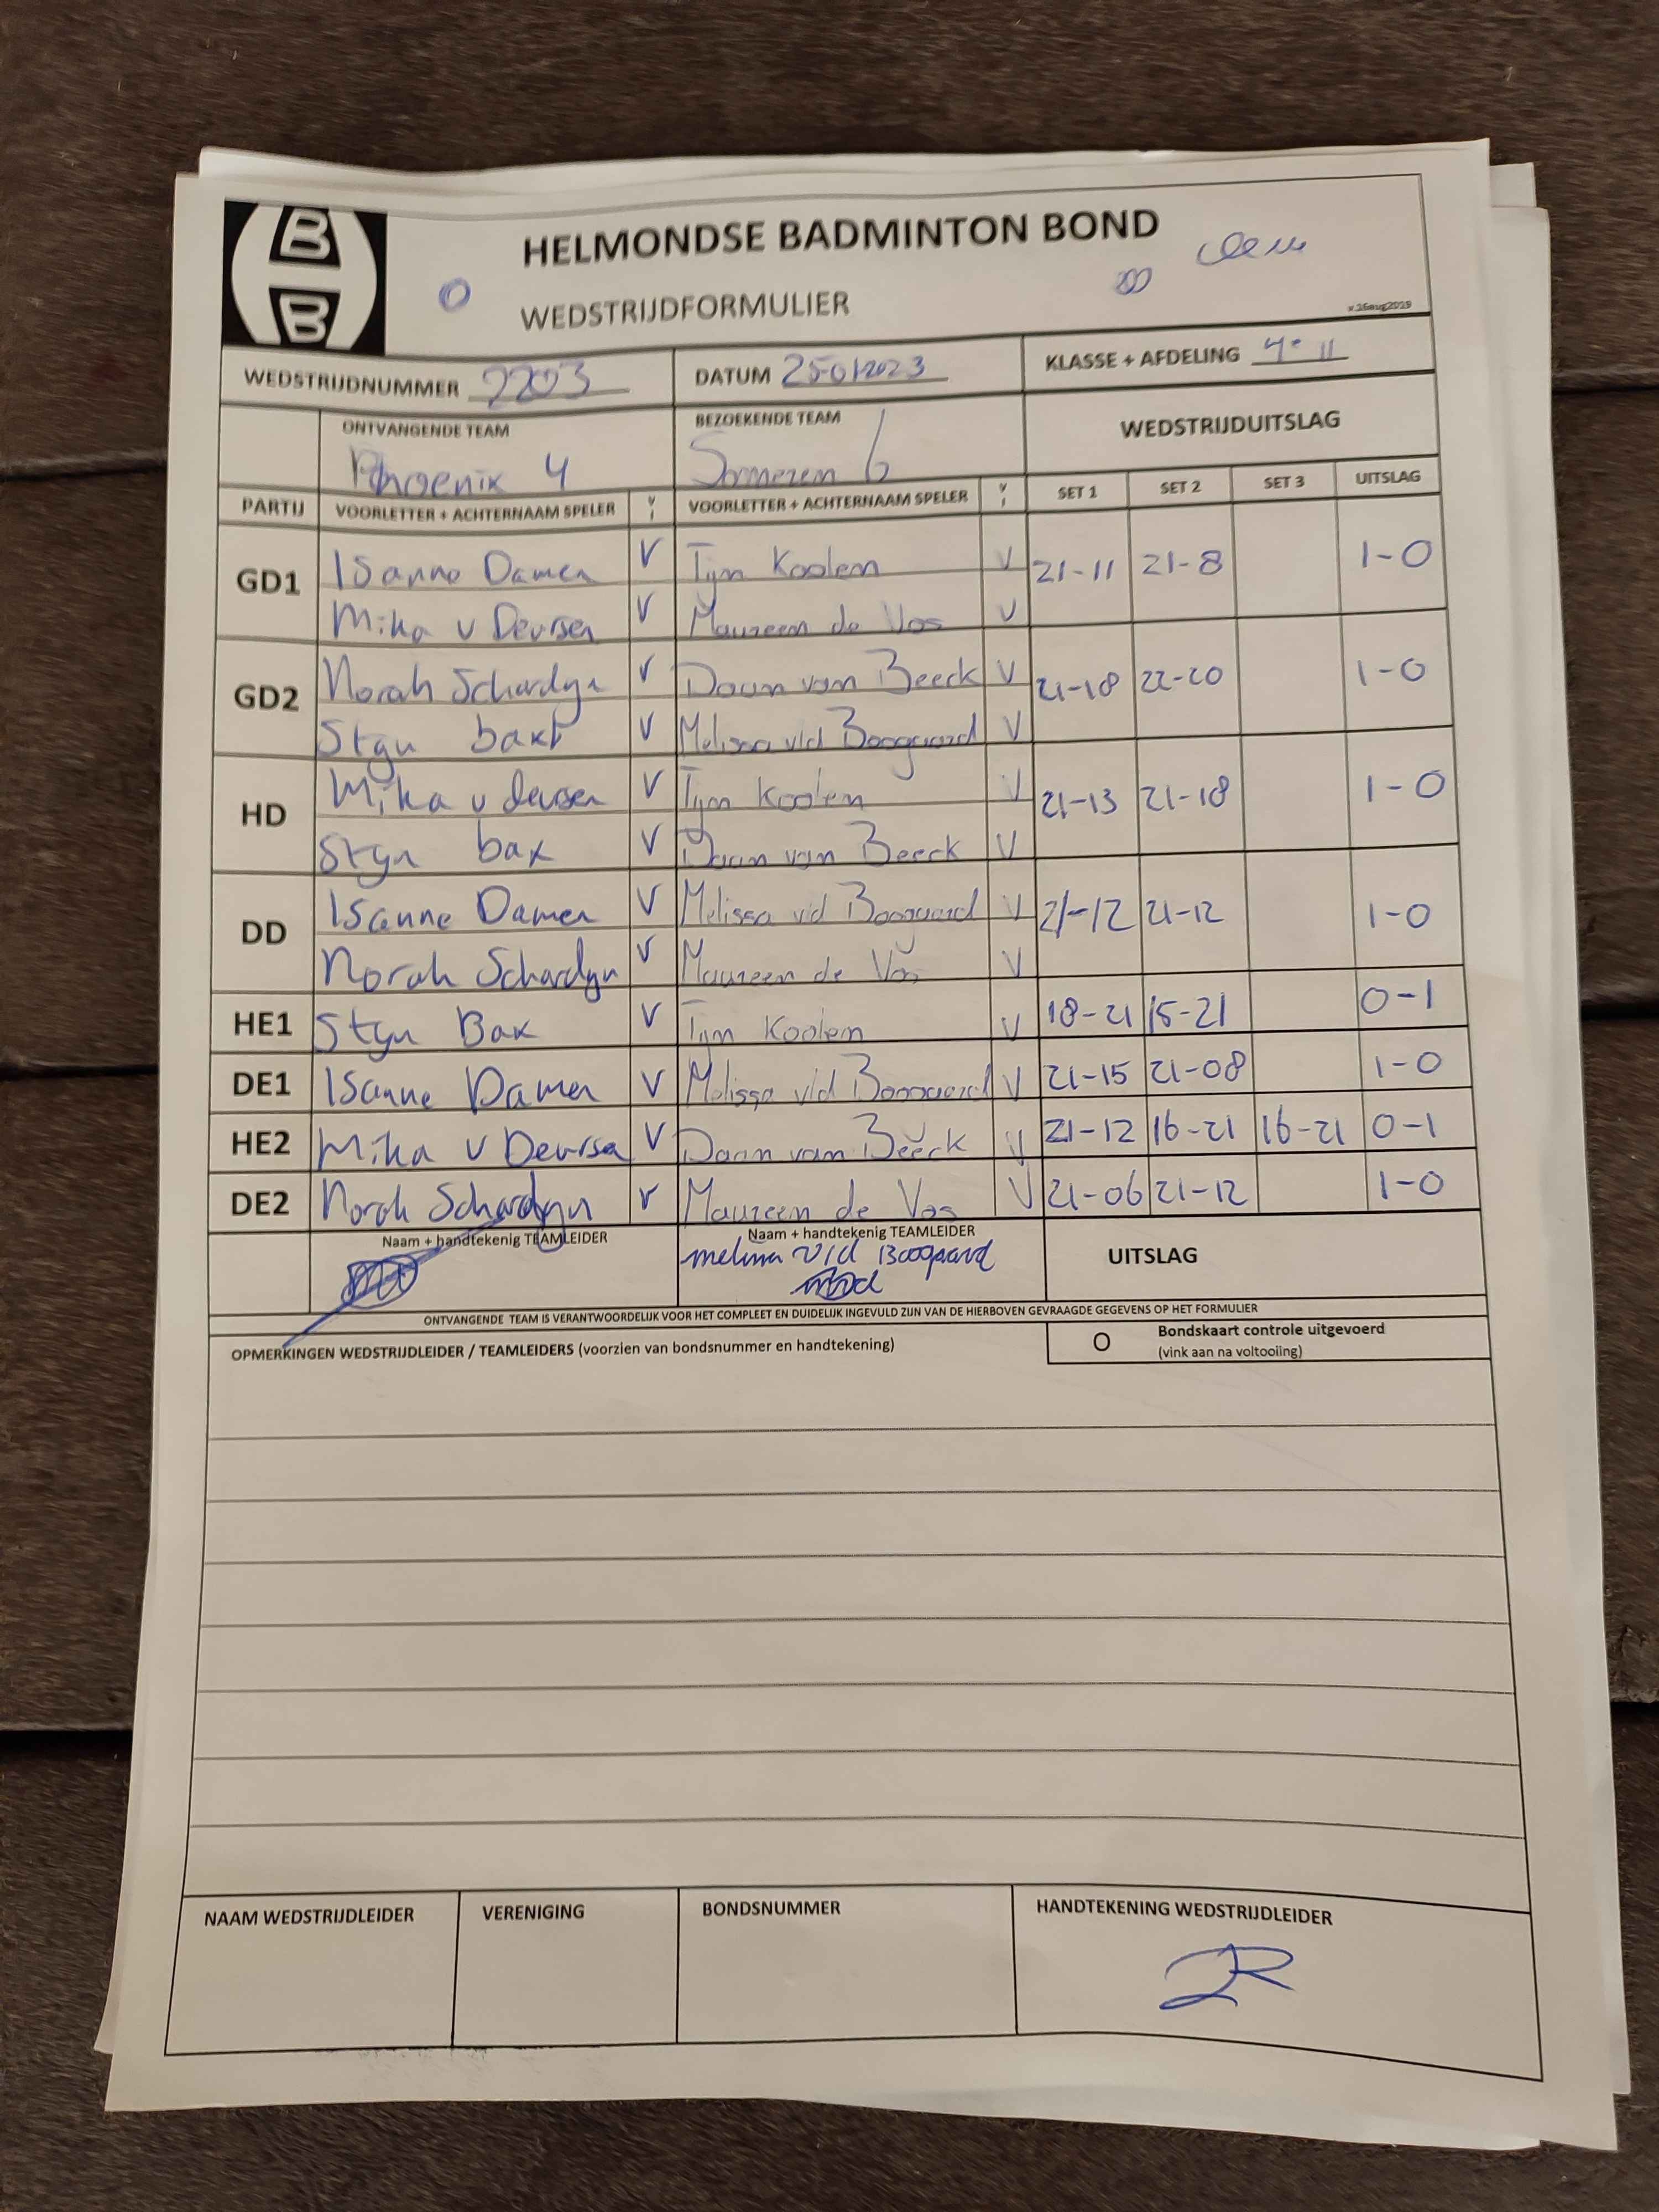 B
B
HELMONDSE BADMINTON BOND
WEDSTRIJDFORMULIER
v.16aug2019
WEDSTRIJDNUMMER 2203 DATUM 25012023 KLASSE + AFDELING 4e II
ONTVANGENDE TEAM BEZOEKENDE TEAM WEDSTRIJDUITSLAG
Phoenix 4 Someren 6
PARTIJ VOORLETTER + ACHTERNAAM SPELER V VOORLETTER + ACHTERNAAM SPELER V SET 1 SET 2 SET 3 UITSLAG
GD1 Isanne Damen V Tijn Koolen V 21-11 21-8 1-0
Mika v Deursen V Maureen de Vos V
GD2 Norah Schardijn V Daan van Beeck V 21-18 22-20 1-0
Stijn bax V Melissa v/d Boogaard V
HD Mika v deursen V Tijn Koolen V 21-13 21-18 1-0
Stijn bax V Daan van Beeck V
DD Isanne Damen V Melissa v/d Boogaard V 21-12 21-12 1-0
Norah Schardijn V Maureen de Vos V
HE1 Stijn Bax V Tijn Koolen V 18-21 15-21 0-1
DE1 Isanne Damen V Melissa v/d Boogaard V 21-15 21-08 1-0
HE2 Mika v Deursen V Daan van Beeck V 21-12 16-21 16-21 0-1
DE2 Norah Schardijn V Maureen de Vos V 21-06 21-12 1-0
Naam + handtekenig TEAMLEIDER Naam + handtekenig TEAMLEIDER UITSLAG
melissa v/d Boogaard
ONTVANGENDE TEAM IS VERANTWOORDELIJK VOOR HET COMPLEET EN DUIDELIJK INGEVULD ZIJN VAN DE HIERBOVEN GEVRAAGDE GEGEVENS OP HET FORMULIER
OPMERKINGEN WEDSTRIJDLEIDER / TEAMLEIDERS (voorzien van bondsnummer en handtekening) O Bondskaart controle uitgevoerd
(vink aan na voltooiing)
NAAM WEDSTRIJDLEIDER VERENIGING BONDSNUMMER HANDTEKENING WEDSTRIJDLEIDER